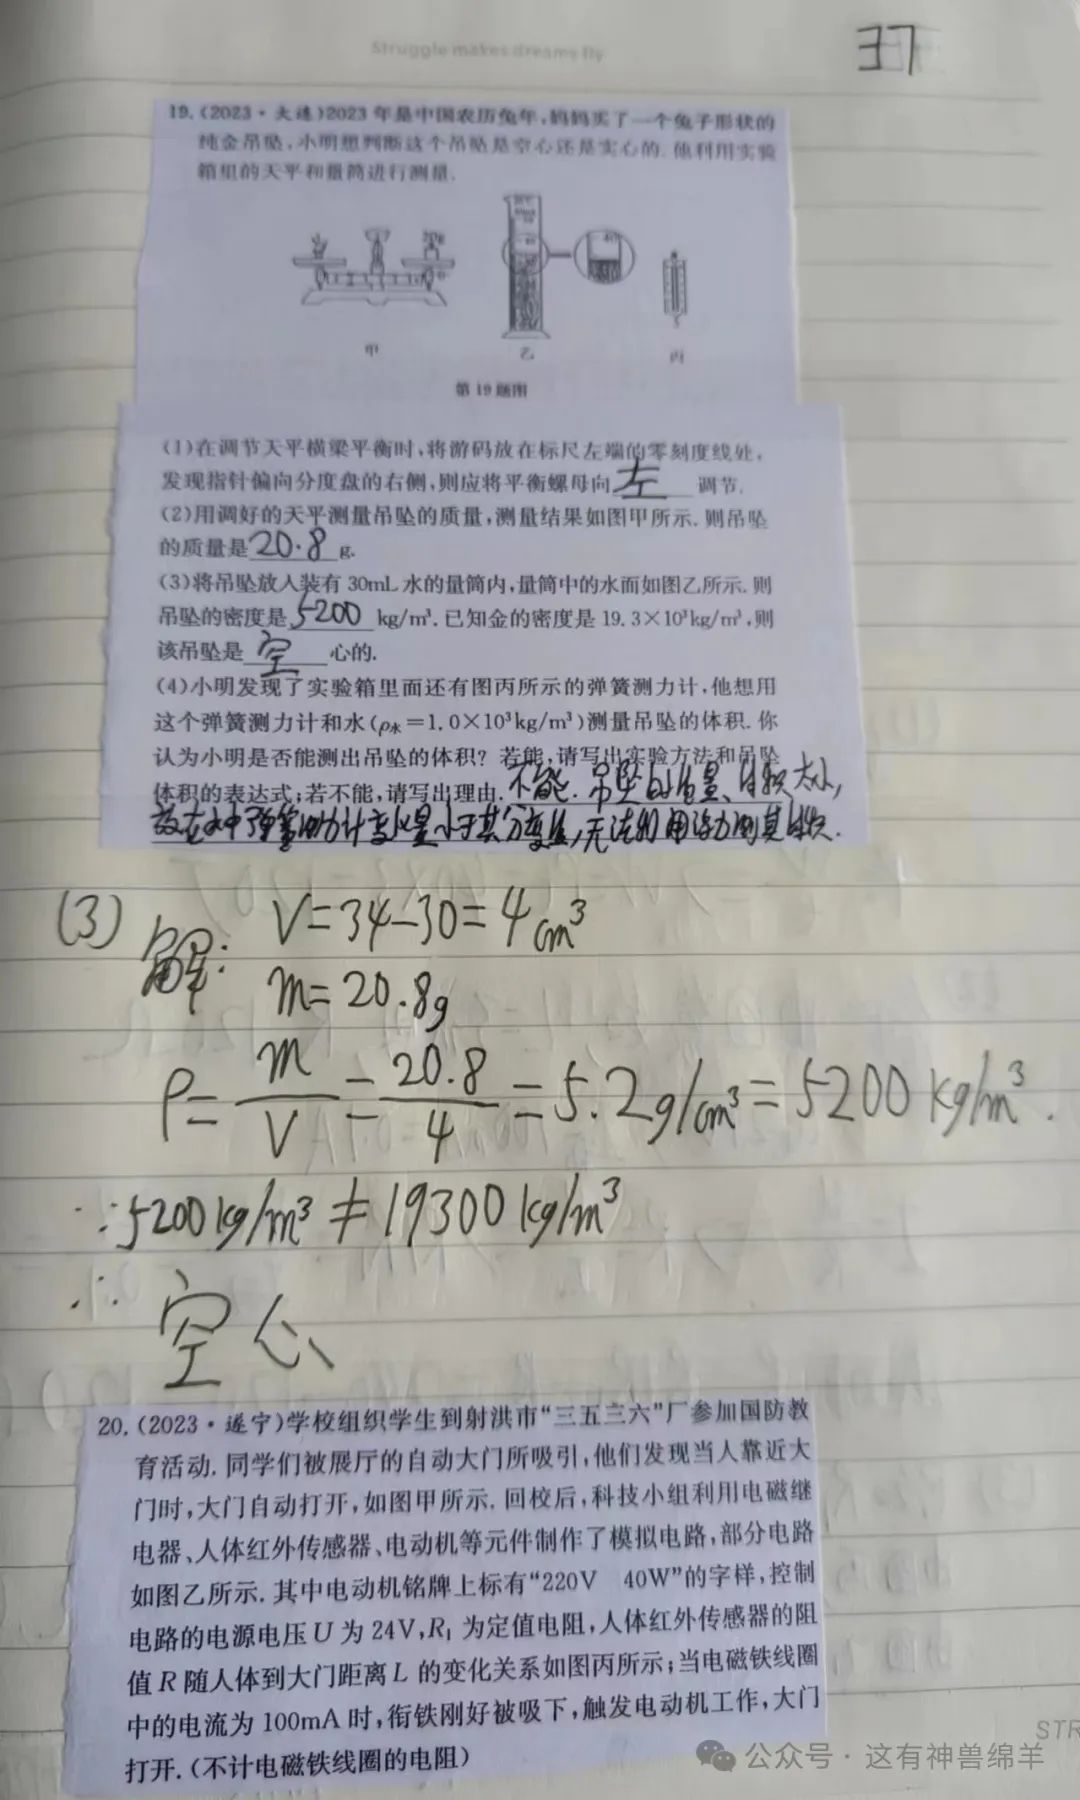 Struggle makes dreams fly
37
19.(2023·大连)2023年是中国农历兔年,妈妈买了一个兔子形状的
纯金吊坠,小明想判断这个吊坠是空心还是实心的.他利用实验
箱组的天平和量筒进行测量.
20g
甲
乙
丙
第19题图
(1)在调节天平横梁平衡时,将游码放在标尺左端的零刻度线处,
发现指针偏向分度盘的右侧,则应将平衡螺母向 左 调节.
(2)用调好的天平测量吊坠的质量,测量结果如图甲所示.则吊坠
的质量是 20.8 g.
(3)将吊坠放入装有30mL水的量筒内,量筒中的水面如图乙所示.则
吊坠的密度是 5200 kg/m³.已知金的密度是19.3×10³kg/m³,则
该吊坠是 空 心的.
(4)小明发现了实验箱里面还有图丙所示的弹簧测力计,他想用
这个弹簧测力计和水(ρ水=1.0×10³kg/m³)测量吊坠的体积.你
认为小明是否能测出吊坠的体积?若能,请写出实验方法和吊坠
体积的表达式;若不能,请写出理由. 不能. 吊坠的质量、体积太小,
放在水中弹簧测力计变化量小于其分度值,无法利用浮力测其体积.
(3) 解: V=34-30=4cm³
m=20.8g
ρ=m/V=20.8/4=5.2g/cm³=5200kg/m³.
∵5200kg/m³≠19300kg/m³
∴ 空心
20.(2023·遂宁)学校组织学生到射洪市“三五三六”厂参加国防教
育活动.同学们被展厅的自动大门所吸引,他们发现当人靠近大
门时,大门自动打开,如图甲所示.回校后,科技小组利用电磁继
电器、人体红外传感器、电动机等元件制作了模拟电路,部分电路
如图乙所示.其中电动机铭牌上标有“220V 40W”的字样,控制
电路的电源电压U为24V,R₁为定值电阻,人体红外传感器的阻
值R随人体到大门距离L的变化关系如图丙所示;当电磁铁线圈
中的电流为100mA时,衔铁刚好被吸下,触发电动机工作,大门
打开.(不计电磁铁线圈的电阻)
STR
公众号·这有神兽绵羊